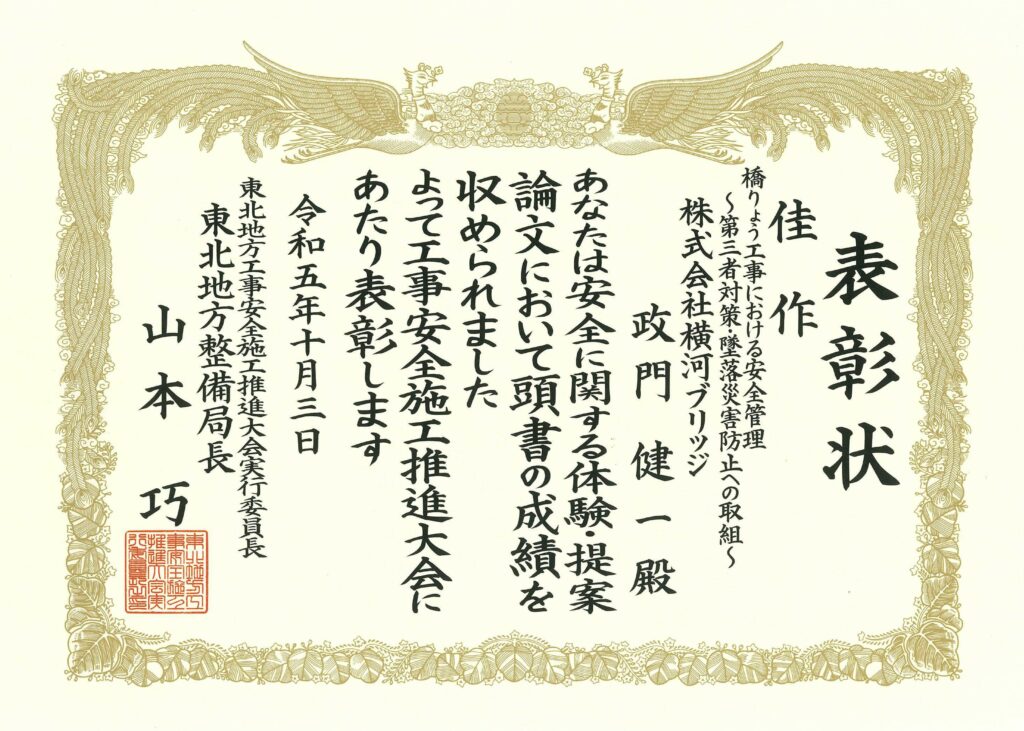 表彰状
佳作
橋りょう工事における安全管理
～第三者対策・墜落災害防止への取組～
株式会社横河ブリッジ
政門健一殿
あなたは安全に関する体験・提案
論文において頭書の成績を
収められました
よって工事安全施工推進大会に
あたり表彰します
令和五年十月三日
東北地方工事安全施工推進大会実行委員長
東北地方整備局長
山本巧